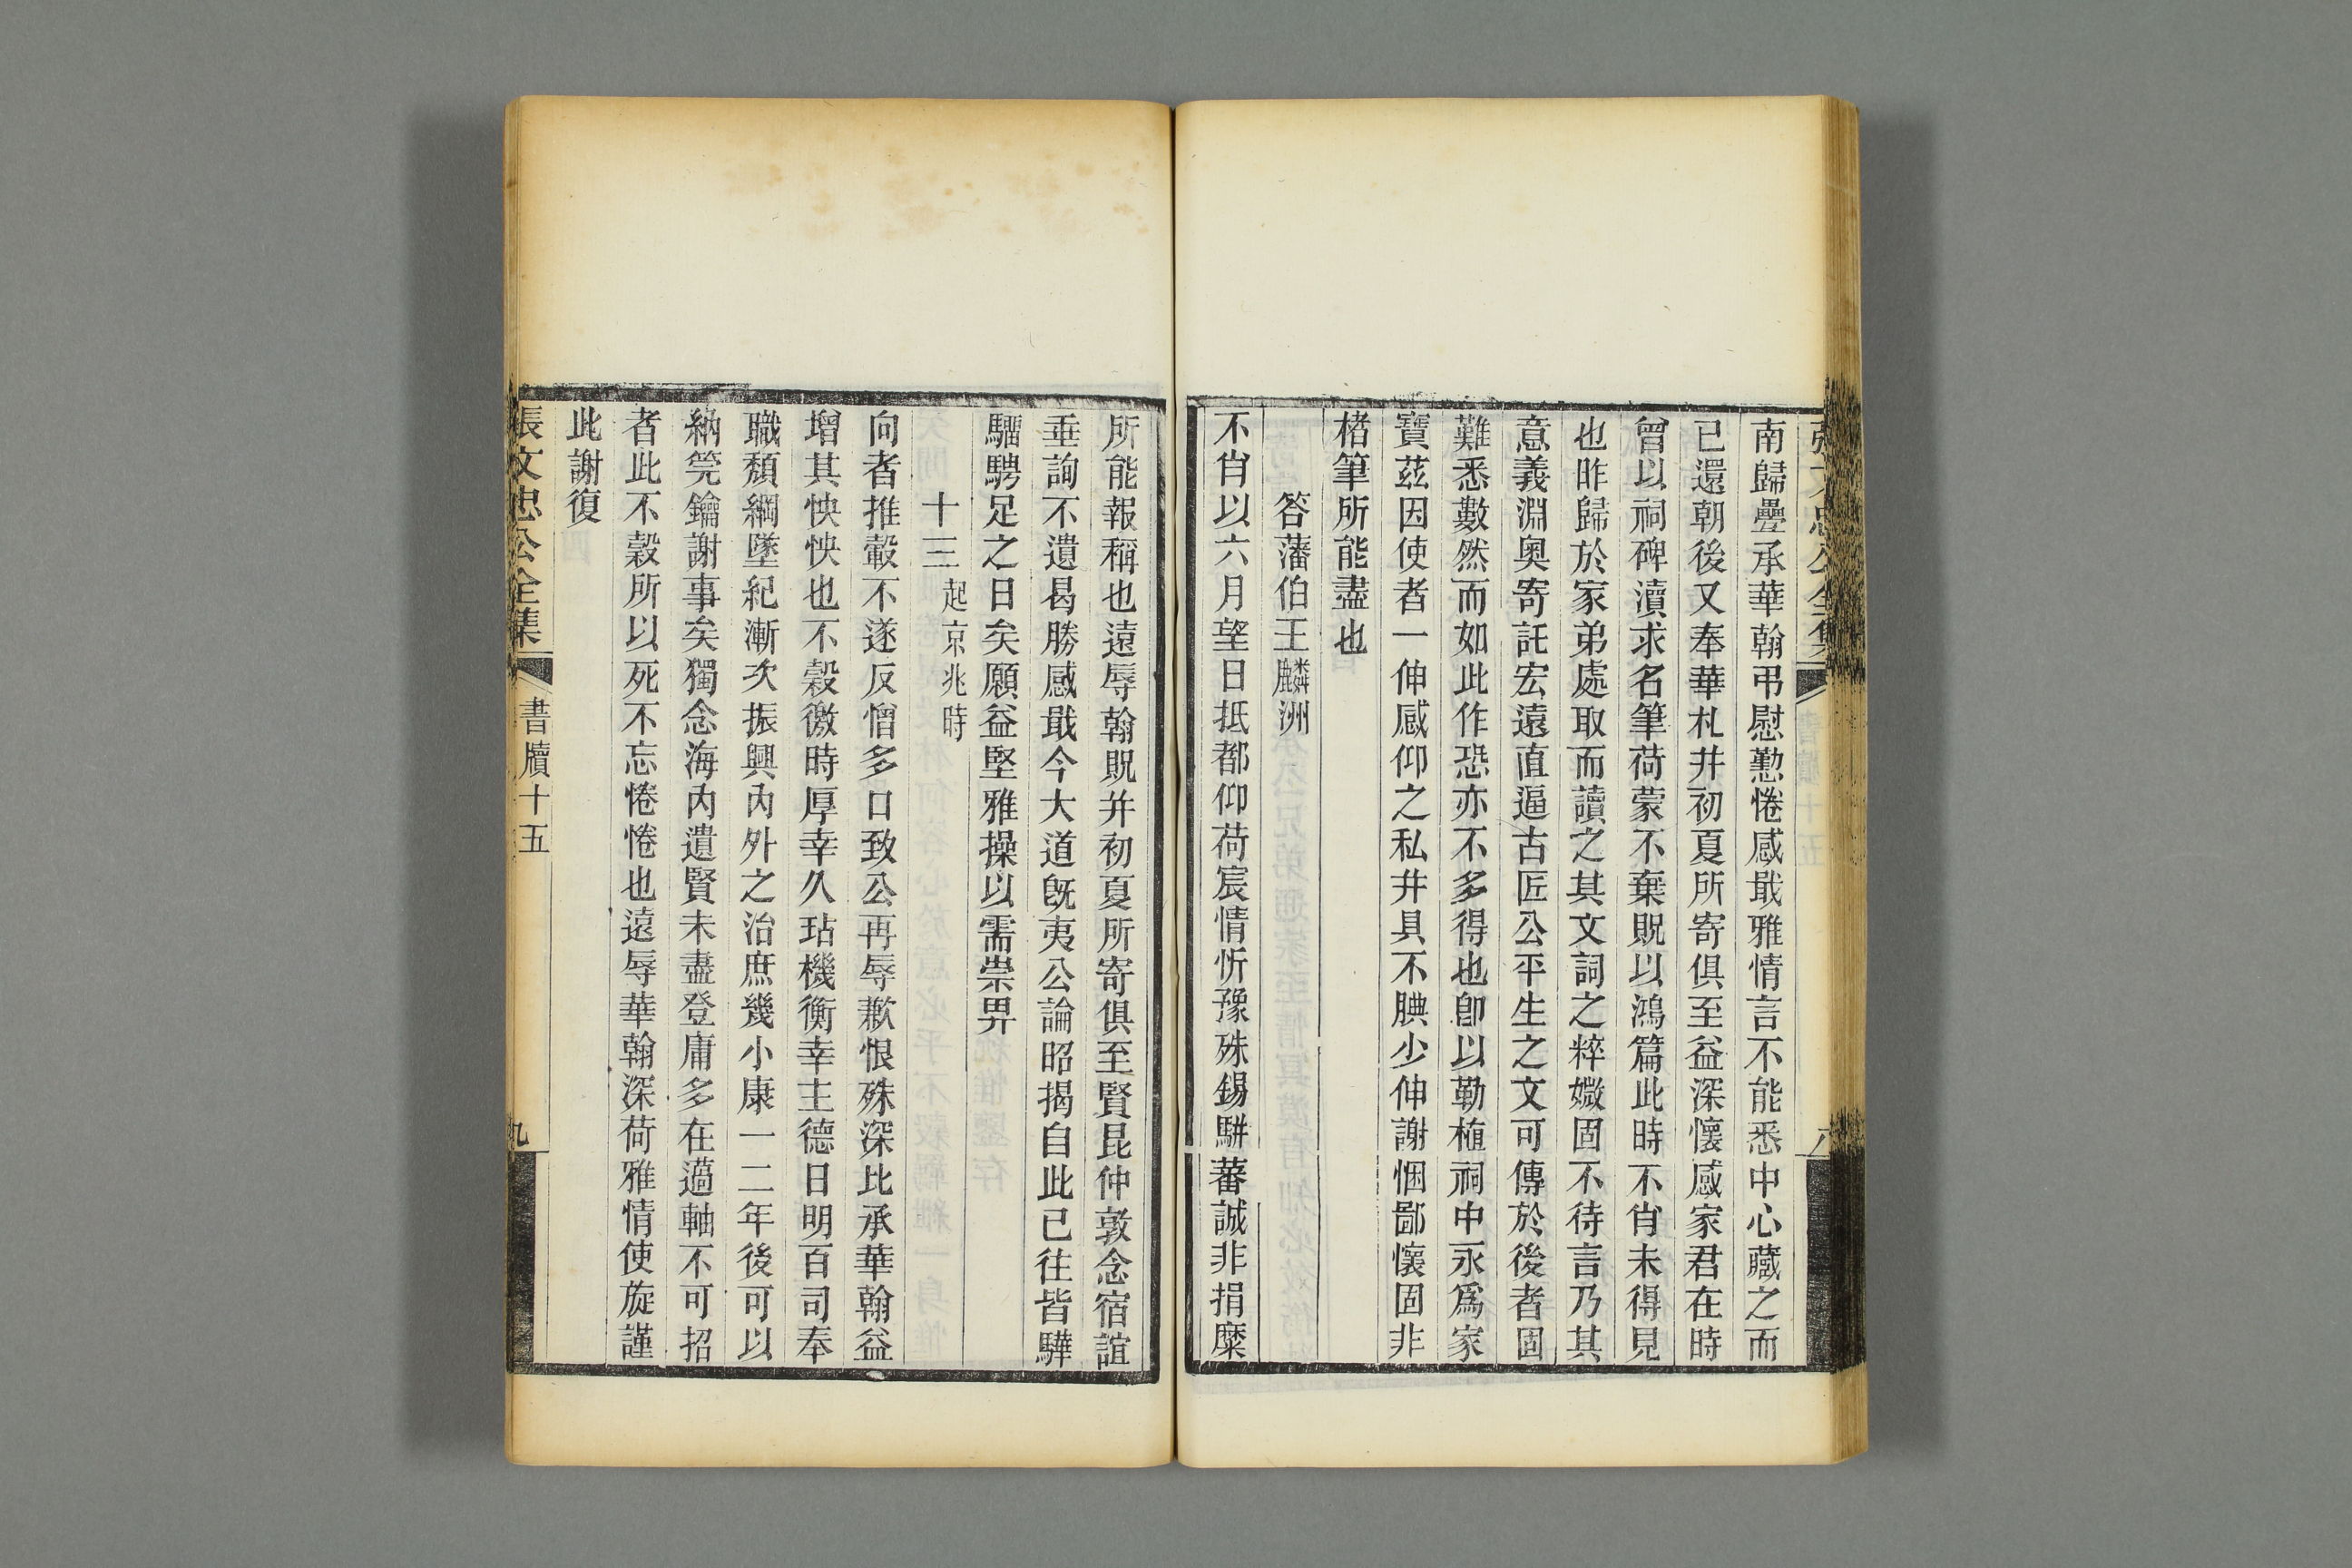 南歸疊承華翰弔慰懃惓感戢雅情言不能悉中心藏之而
已還朝後又奉華札并初夏所寄俱至益深懷感家君在時
曾以祠碑瀆求名筆荷蒙不棄貺以鴻篇此時不肖未得見
也昨歸於家弟處取而讀之其文詞之粹媺固不待言乃其
意義淵奧寄託宏遠直逼古匠公平生之文可傳於後者固
難悉數然而如此作恐亦不多得也卽以勒植祠中永爲家
寶茲因使者一伸感仰之私并具不腆少伸謝悃鄙懷固非
楮筆所能盡也
答藩伯王麟洲
不肖以六月望日抵都仰荷宸情忻豫殊錫駢蕃誠非捐糜
所能報稱也遠辱翰貺并初夏所寄俱至賢昆仲敦念宿誼
垂詢不遺曷勝感戢今大道旣夷公論昭揭自此已往皆驊
騮騁足之日矣願益堅雅操以需崇畀
十三起京兆時
向者推轂不遂反憎多口致公再辱歉恨殊深比承華翰益
增其怏怏也不穀徼時厚幸久玷機衡幸主德日明百司奉
職頹綱墜紀漸次振興內外之治庶幾小康一二年後可以
納筦鑰謝事矣獨念海內遺賢未盡登庸多在薖軸不可招
者此不穀所以死不忘惓惓也遠辱華翰深荷雅情使旋謹
此謝復
張文忠公全集
書牘十五
九